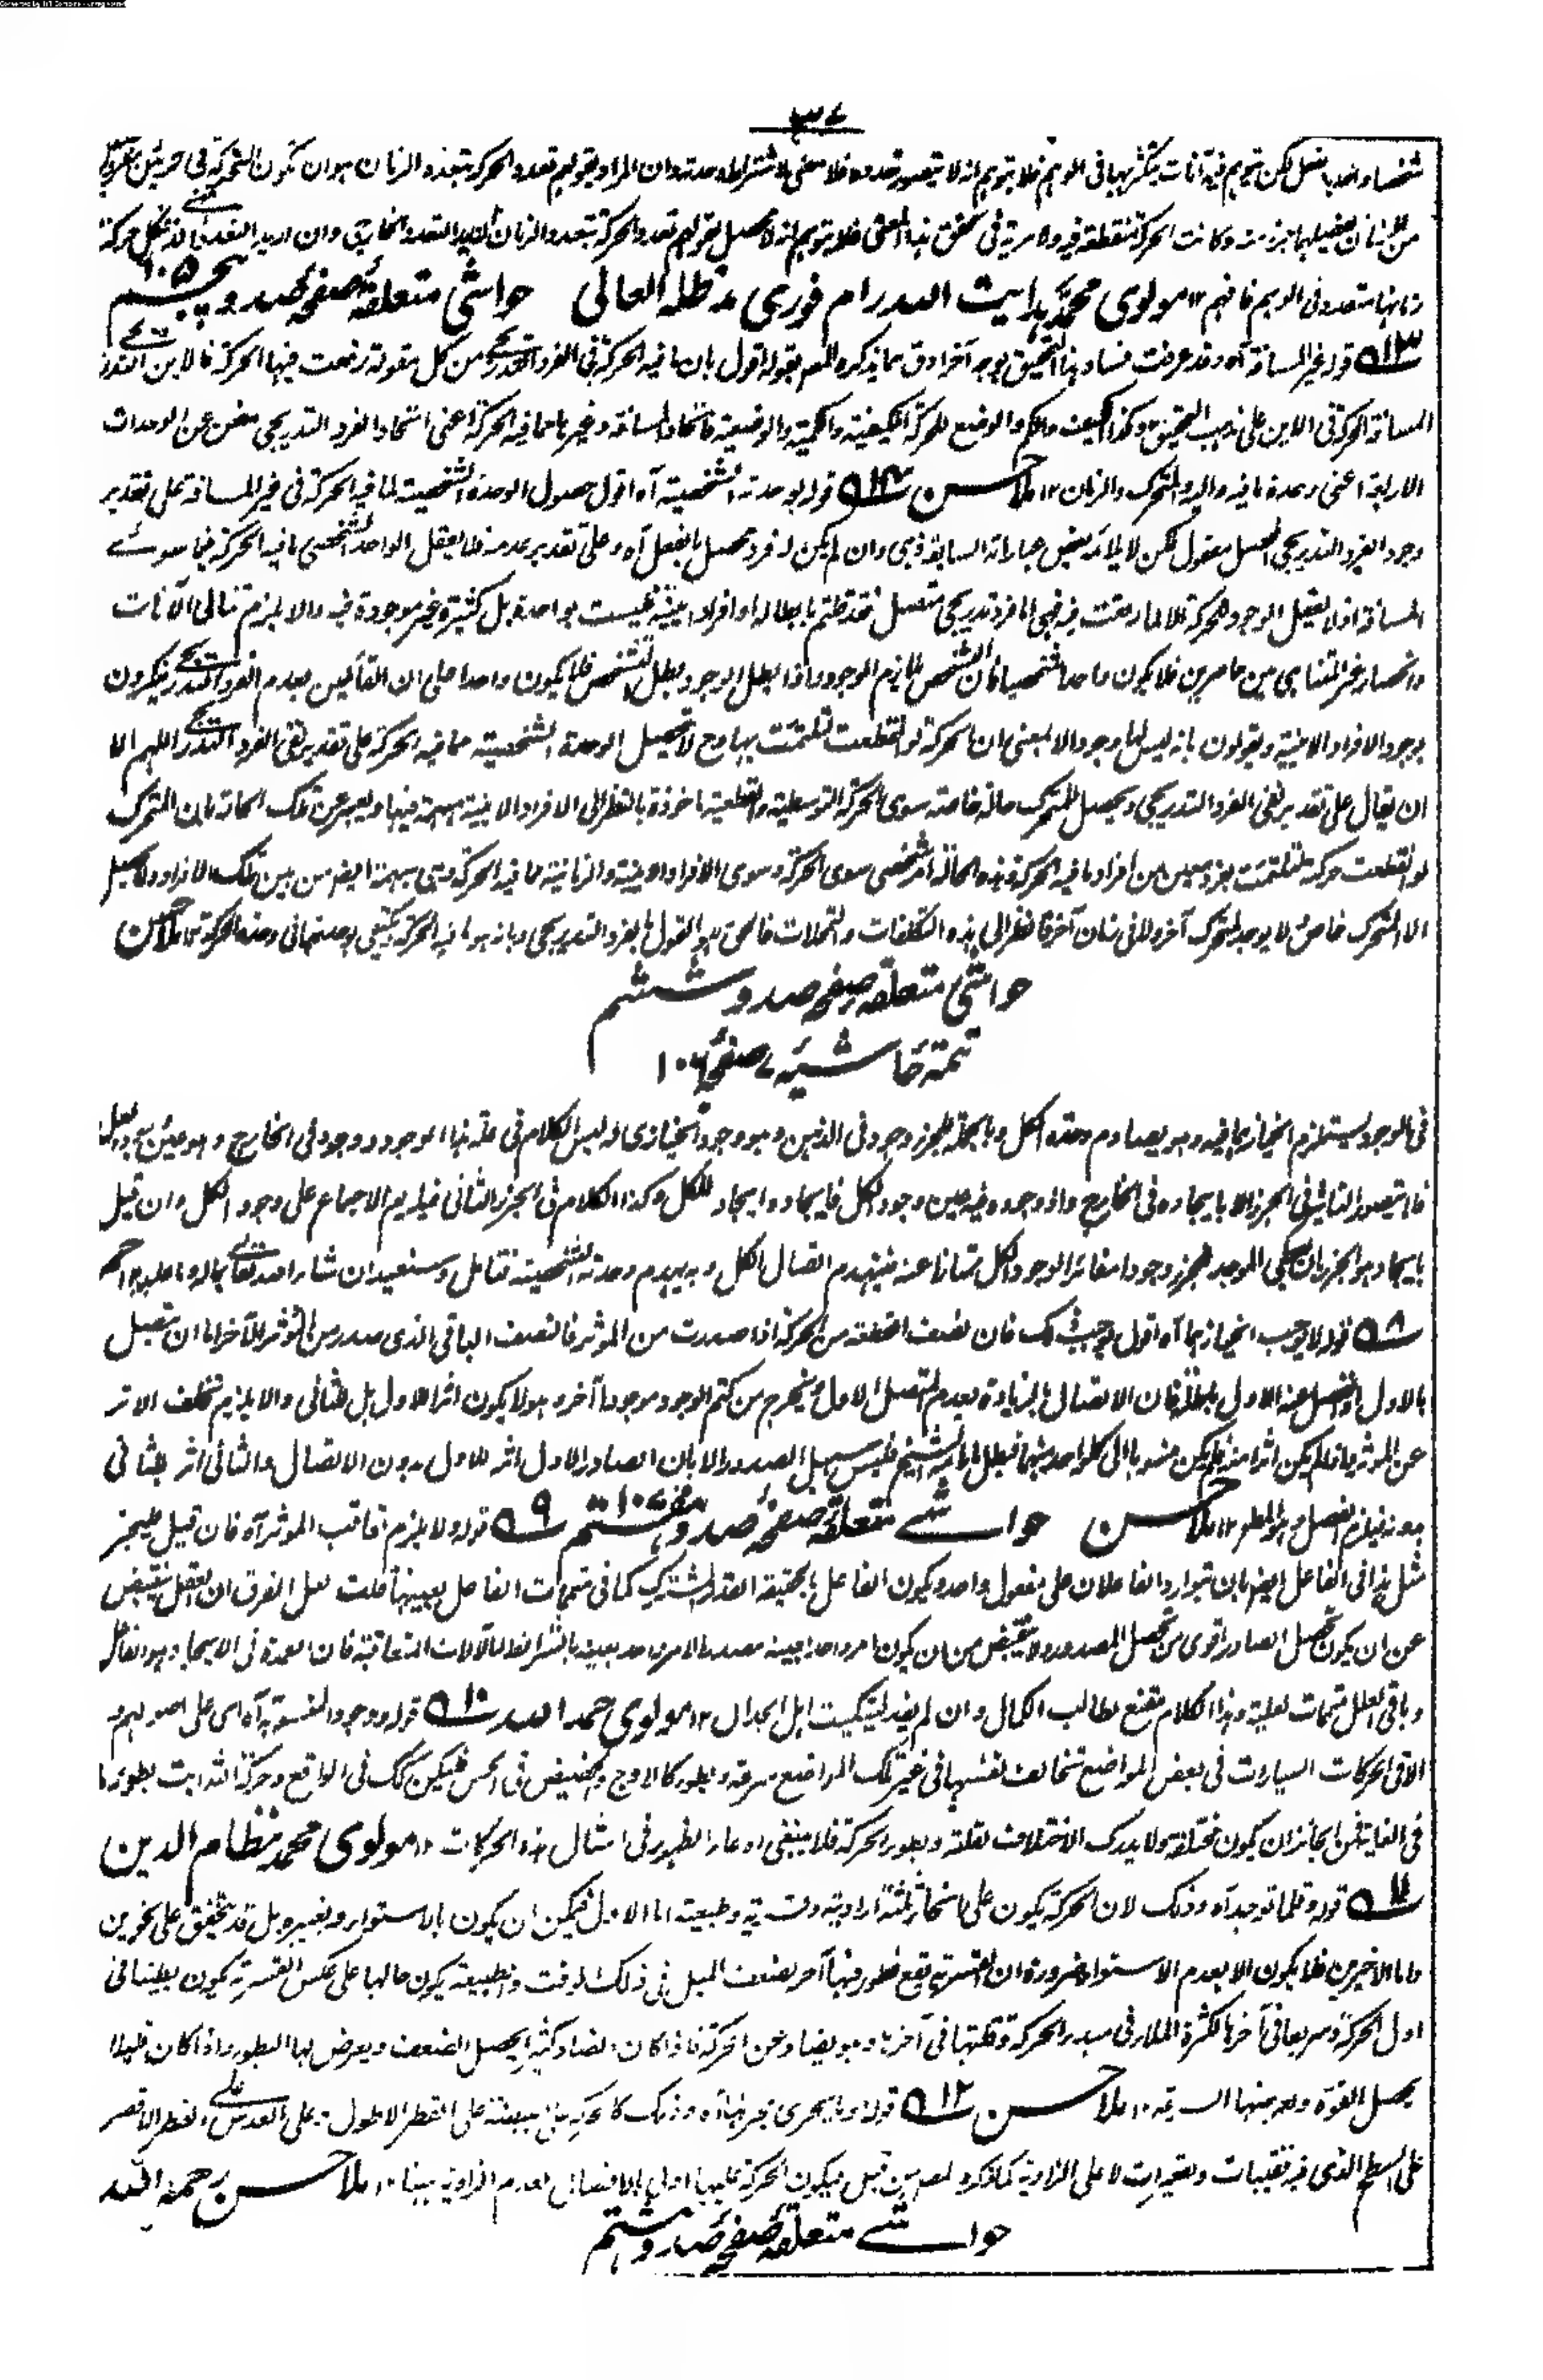 ٣٤
شخصا واحدا بالفعل لكن توهم فيه آنات يتكثر بها في الوهم فلا يتوهم انه لا يتصور تعدده فلا معنى لاشتراط وحدته وان المراد بقولهم تعدد الحركة بتعدد الزمان هو ان تكون المتحركة في جزئين
من الزمان وكانت الحركة منقطعة فيه ولا مرية في تحقق هذا المعنى فلا يتوهم انه لا محصل لقولهم تعدد الحركة بتعدد الزمان ان اريد التعدد الخارجي وان اريد التعدد لكل حركة
زمانها متعدد في الوهم فافهم ١٢ مولوي محمد هدايت الله رام فوري مد ظله العالي حواشي متعلقه صفحه صد و پنجم ١٠٥
١٣ قوله غير المسافة آه وقد عرفت فساد هذا التحقيق بوجه آخر ادق مما يذكره المصم بقوله اقول بان ما فيه الحركة في الفرد التدريجي من كل مقولة وقعت فيها الحركة فالاين التدريجي
المسافة الحركة في الاين على مذهب التحقيق وكذا الكيف والكم والوضع للحركة الكيفية والكمية والوضعية فاتحاد المسافة وغيرها مما فيه الحركة اعني اتحاد الفرد التدريجي مغن عن الوحدات
الاربعة اعني وحدة ما فيه والمتحرك والزمان ١٢ ملا حسن ١٤ قوله بوحدته الشخصية آه اقول حصول الوحدة الشخصية لما فيه الحركة في غير المسافة على تقدير
وجود الفرد التدريجي المتصل معقول لكن لا يلائمه بعض عباراته السابقة وهي وان لم يكن له فرد محصل بالفعل آه وعلى تقدير عدمه فلا يعقل الواحد الشخصي ما فيه الحركة فيما سوى
المسافة اذ لا يعقل الوجود للحركة الا لما وقعت فيه فهي اما فرد تدريجي متصل فقد قلتم بابطاله او افراد آنية فليست بواحدة بل كثيرة وغير موجودة فيه والا يلزم تتالي الآنات
وانحصار غير المتناهي بين حاصرين فلا يكون ما واحدا شخصيا فان التشخص يلازم الوجود واذا بطل الوجود بطل التشخص فلا يكون واحدا على ان القائلين بعدم الفرد التدريجي ينكرون
بوجود الافراد الآنية ويقولون بانه ليس لها وجود الا بمعنى ان الحركة لو انقطعت تلبست بها مع لا تحصيل الوحدة الشخصية مما فيه الحركة على تقدير نفي الفرد التدريجي اللهم الا
ان يقال على تقدير نفي الفرد التدريجي ويحصل للمتحرك حالة خاصة سوى الحركة التوسطية والقطعية ماخوذة بالنظر الى الافراد الآنية مبهمة فيها ويعبر عن تلك الحالة بان المتحرك
لو انقطعت حركته تلبست بفرد معين من افراد ما فيه الحركة فهذه الحالة امر شخصي سوى الحركة وسوى الافراد الآنية والزمانية مما فيه الحركة وهي مبهمة ايضا من بين تلك الافراد ولا تحصل
الا المتحرك خاص لا يوجد لمتحرك آخر ولا في زمان آخر فانظر الى هذه التكلفات والتمحلات فالحق هو القول بالفرد التدريجي وبانه هو ما فيه الحركة ويكتفي بوحدتها في وحدة الحركة ١٢ ملا حسن
حواشي متعلقه صفحه صد و ششم
تتمة حاشيه ٧ صفحه ١٠٦
في الوجود ليستلزم انحياز ما فيه وهو يصادم وحدة الكل وبالجملة للجزء وجود في الذهن وهو وجود انحيازي له ليس الكلام في علة هذا الوجود ووجود في الخارج وهو عين وجود الكل
فلا يتصور التاثير في الجزء الا بايجاده في الخارج واذ وجوده فيه عين وجود الكل فايجاده ايجاد للكل وكذا الكلام في الجزء الثاني فيلزم الاجماع على وجود الكل وان قيل
بايجاد هو الجزء ان يعطي الموجد للجزء وجودا مغائرا لوجود الكل ممتازا عنه فينهدم اتصال الكل وبه ينهدم وحدته الشخصية فتامل وسنعيد ان شاء الله تعالى
٨ قوله لا يوجب انحيازها آه اقول يوجب ذلك فان نصف القطعة من الحركة اذا صدرت من المؤثر فالنصف الباقي الذي صدر من المؤثر الآخر اما ان يتصل
بالاول او ينفصل عنه الاول باطل فان الاتصال بالزيادة بعدم المتصل الاول ويخرج من كتم الوجود موجودا آخر وهو لا يكون اثرا للاول بل للثاني والا يلزم تخلف الاثر
عن المؤثر فلم يكن اثرا منه فلم يكن منسوبا الى كلواحد منهما فبطل فليس سبيل الصدور الا بان الصادر الاول اثر للاول بدون الاتصال والثاني اثر للثاني
بعده فيلزم الفصل وهو المطلوب ١٢ ملا حسن حواشي متعلقه صفحه صد و هفتم ١٠٧ ٩ قوله ولا يلزم تعاقب المؤثر آه فان قيل فليجز
مثل هذا في الفاعل ايضا بان يتوارد الفاعلان على مفعول واحد ويكون الفاعل بالحقيقة القدر المشترك كما في متممات الفاعل بعينها قلت لعل الفرق ان العقل ينقبض
عن ان يكون تحصل الصادر اقوى من تحصل المصدر ولا ينقبض من ان يكون امر واحد بعينه مصدرا لامر واحد بعينه بالشرائط والآلات المتعاقبة فان العمدة في الايجاد هو الفاعل
وباقي العلل متممات لعليته وهذا الكلام مقنع لطالب الكمال وان لم يفد لتبكيت اهل الجدال ١٢ مولوي حمد الله ١٠ قوله ووجود النسوية آه اي على اصولهم
الا في الحركات السيارات في بعض المواضع تخالف نفسها في غير تلك المواضع سرعة وبطوء كالاوج والحضيض في الحس فليكن كذلك في الواقع وحركة الثوابت بطؤها
في الغاية فمن الجائز ان يكون مختلفة ولا يدرك الاختلاف لقلته وبطوء الحركة فلا ينبغي ادعاء الظهور في امثال هذه الحركات ١٢ مولوي محمد نظام الدين
١١ قوله وقلما توجد آه وذلك لان الحركة يكون على انحاء ثلثة ارادية وقسرية وطبيعية اما الاول فيمكن ان يكون بالاستواء وبغيره بل قد يتحقق على نحوين
واما الاخيرين فلا يكون الا بعدم الاستواء ضرورة ان القسرية يقع فطور فيها آخر لضعف الميل في ذلك الوقت والطبيعة يكون حالها على عكس القسرية يكون بطيئا في
اول الحركة وسريعا في آخرها لكثرة الملاء في مبدء الحركة وقلتها في آخرها وهو يضاد عن الحركة فاذا كان المضاد كثيرا يحصل الضعف ويعرض لها البطوء واذا كان قليلا
يحصل القوة ويعرضها السرعة ١٢ ملا حسن ١٢ قوله وما يجري مجراها آه وذلك كالحركة على القطر الاطول وعلى العدسي على القطر الاقصر
على السطح الذي فيه تقبيبات وتقعيرات لا على الزاوية كما ذكره المصم من قبل فيكون الحركة عليها اولى بالاتصال لعدم الزاوية بينها ١٢ ملا حسن رحمه الله
حواشي متعلقه صفحه صد و هشتم